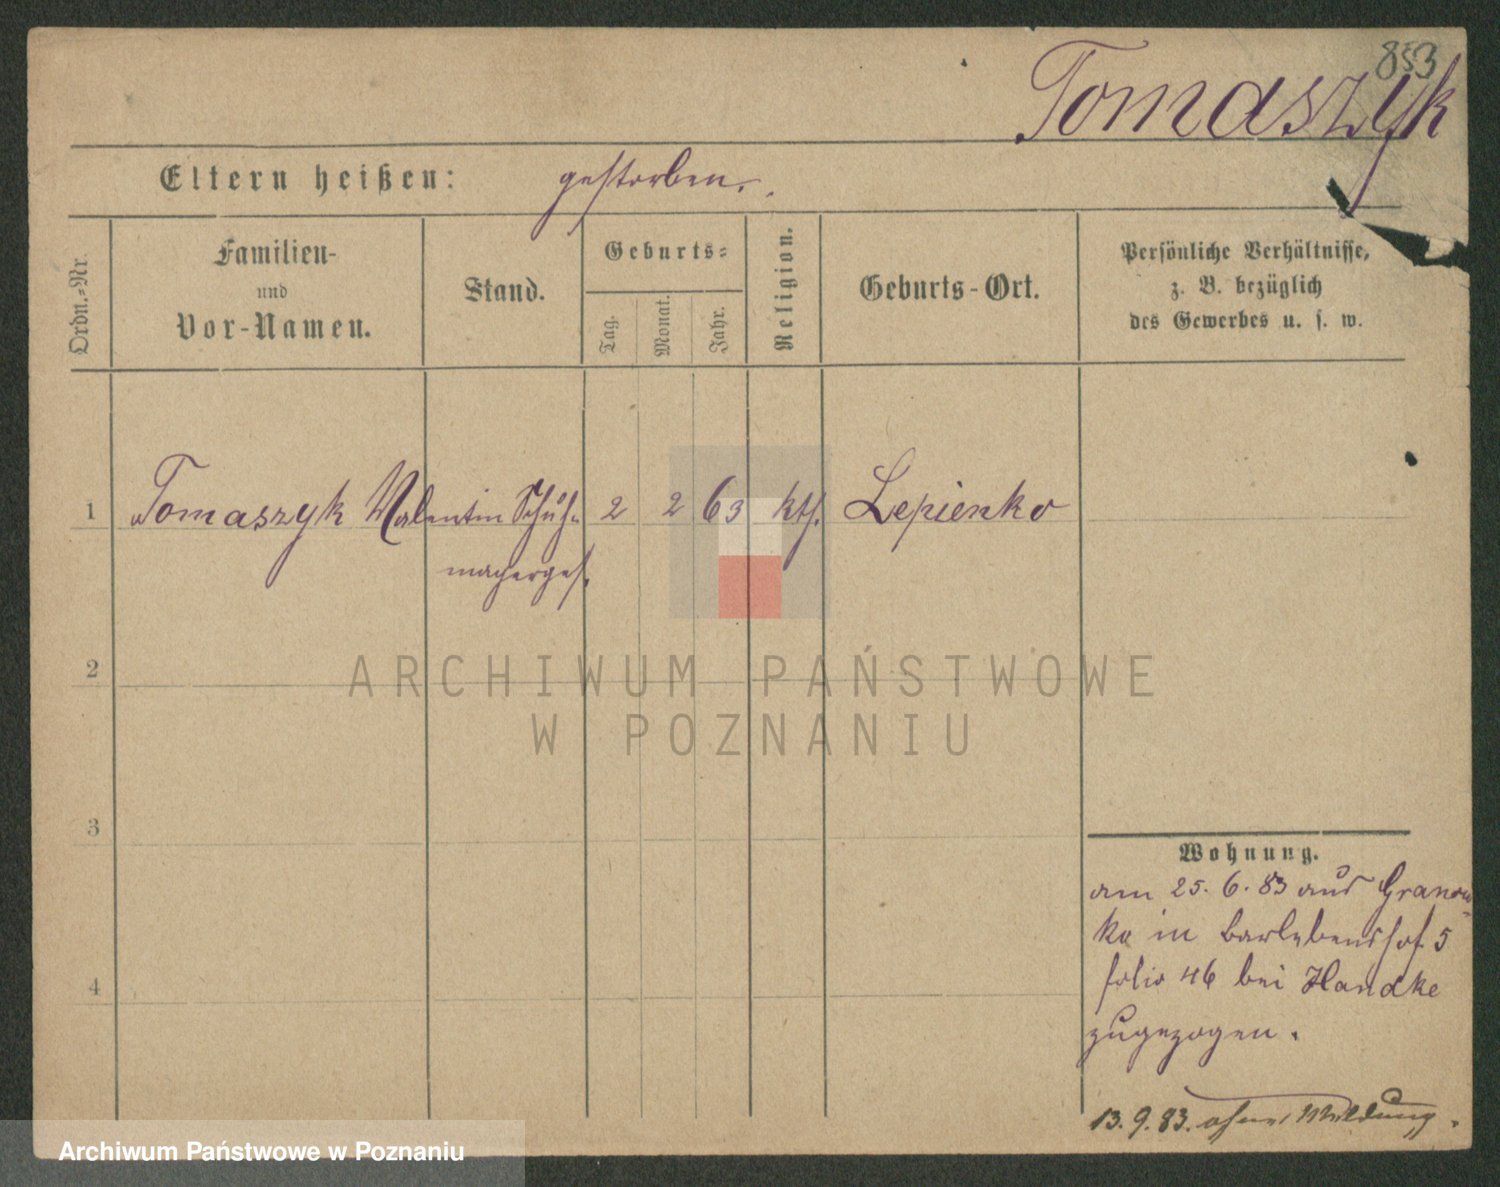 853
Tomaszyk
Eltern heißen: gestorben.
Ordn.-Nr.
Familien-
und
Vor-Namen.
Stand.
Geburts-
Tag.
Monat.
Jahr.
Religion.
Geburts-Ort.
Persönliche Verhältnisse,
z. B. bezüglich
des Gewerbes u. s. w.
1 Tomaszyk Valentin Schuh- 2 2 63 kth. Lepienko
macherges.
2
3
4
Wohnung.
am 25. 6. 83 aus Granow-
ko in Barlebenshof 5
folio 46 bei Handke
zugezogen.
13. 9. 83. ohne Meldung.
ARCHIWUM PAŃSTWOWE
W POZNANIU
Archiwum Państwowe w Poznaniu